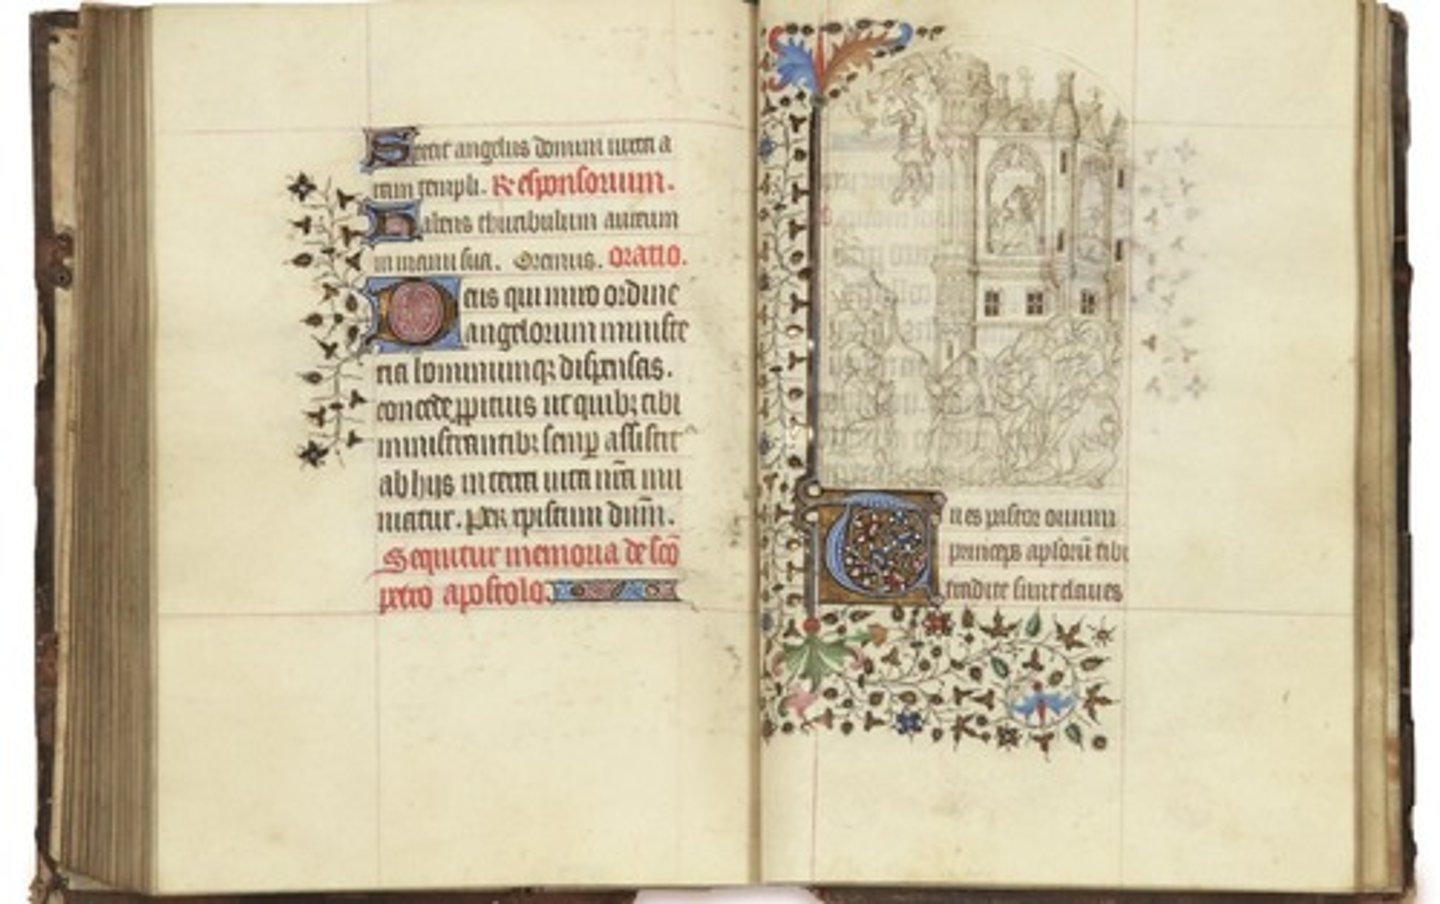 Stetit angelus domini iuxta a
ram templi. Responsorium.
Habens thuribulum aureum
in manu sua. Oremus. Oratio.
Deus qui miro ordine
angelorum ministe
ria hominumq; dispensas.
concede ppitius ut quibz tibi
ministrantibz semp assistit
ab hijs in terra uita nr̄a mu
niatur. Per xpistum dūm.
Sequitur memoria de sco̅
petro apostolo.
Tu es pastor ouium
princeps aplorū tibi
tradite sunt claues